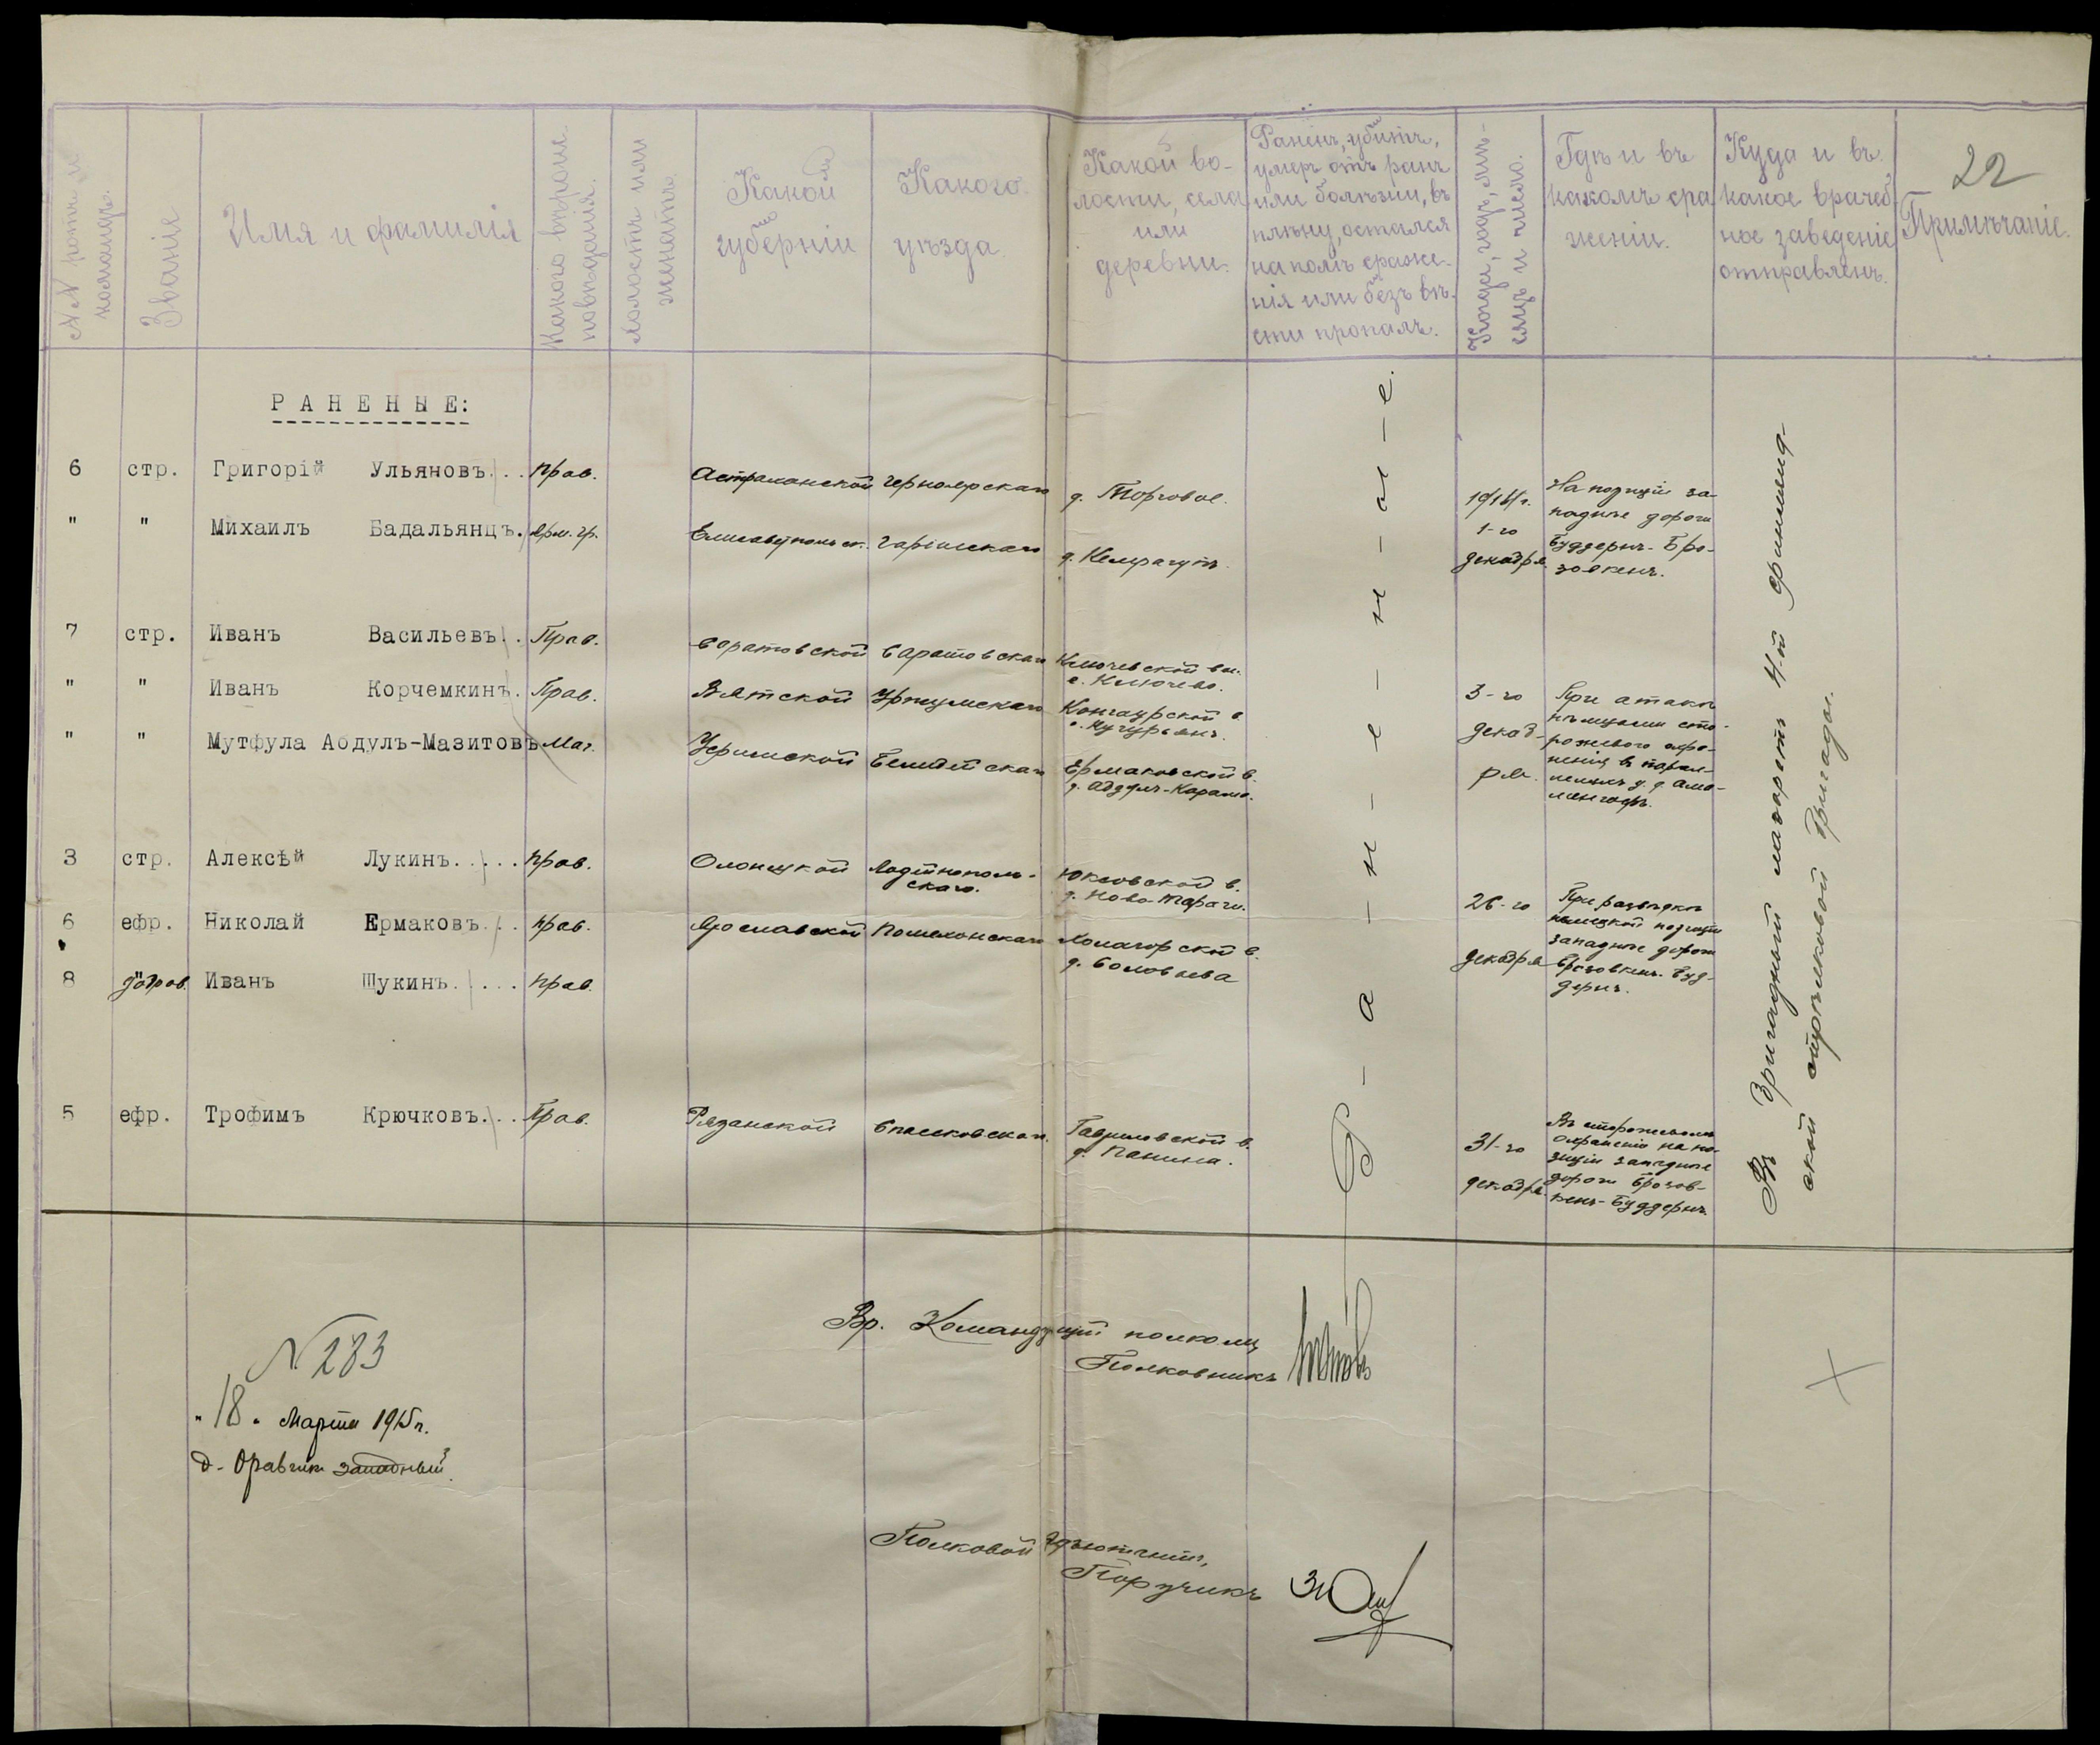 22
№№ ротъ и командъ.
Званіе
Имя и фамилія
Какого вѣроисповѣданія.
Холостъ или женатъ.
Какой губерніи
Какого уѣзда.
Какой волости, села или деревни.
Раненъ, убитъ, умеръ отъ ранъ или болѣзни, въ плѣну, остался на полѣ сраженія или безъ вѣсти пропалъ.
Когда, годъ, мѣсяцъ и число.
Гдѣ и въ какомъ сраженіи.
Куда и въ какое врачебное заведеніе отправленъ.
Примѣчаніе.
РАНЕНЫЕ:
6 стр. Григорій Ульяновъ... Прав. Астраханской Черноярскаго д. Торговое.
" " Михаилъ Бадальянцъ. Арм. гр. Елисаветпольск.
1914 г. 1-го декабря
На позиціи западнѣе дороги Буддернъ-
7 стр. Иванъ Васильевъ.. Прав. Саратовской Саратовскаго Ключевской вол. с. Ключево.
" " Иванъ Корчемкинъ. Прав. Вятской Уржумскаго
" " Мутфула Абдулъ-Мазитовъ Маг. Уфимской Белебейскаго Ермаковской в.
3-го декабря.
При атакѣ нѣмцами сторожевого охраненія
3 стр. Алексѣй Лукинъ..... Прав. Олонецкой Лодейнопольскаго. Юксовской в.
6 ефр. Николай Ермаковъ... Прав. Ярославской Пошехонскаго
8 добров. Иванъ Щукинъ..... Прав. д. Соловьева
26-го декабря
При развѣдкѣ нѣмецкой позиціи западнѣе дороги
5 ефр. Трофимъ Крючковъ... Прав. Рязанской Спасскаго Гавриловской в. д. Панина.
31-го декабря
Въ сторожевомъ охраненіи на позиціи западнѣе дороги
Р-а-н-е-н-ы-е.
Въ бригадный лазаретъ 4-й финляндской стрѣлковой бригады.
Вр. Командующій полкомъ
Полковникъ
№ 283
"18" Марта 1915 г.
д. Оравчикъ западный
Полковой адъютантъ,
Поручикъ